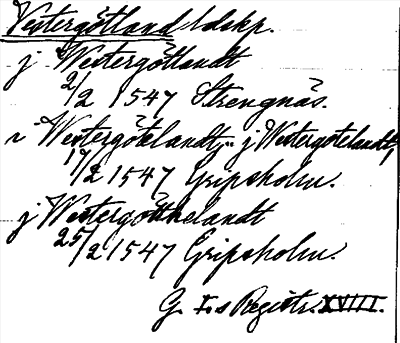 Vestergötland ldskp.
j Westergötlandt
2/2 1547 Strengnäs.
i Westergötelandt, j Westergotelandt,
17/2 1547 Gripsholm.
j Westergötthelandt
25/2 1547 Gripsholm.
G. I:s Registr. XVIII.